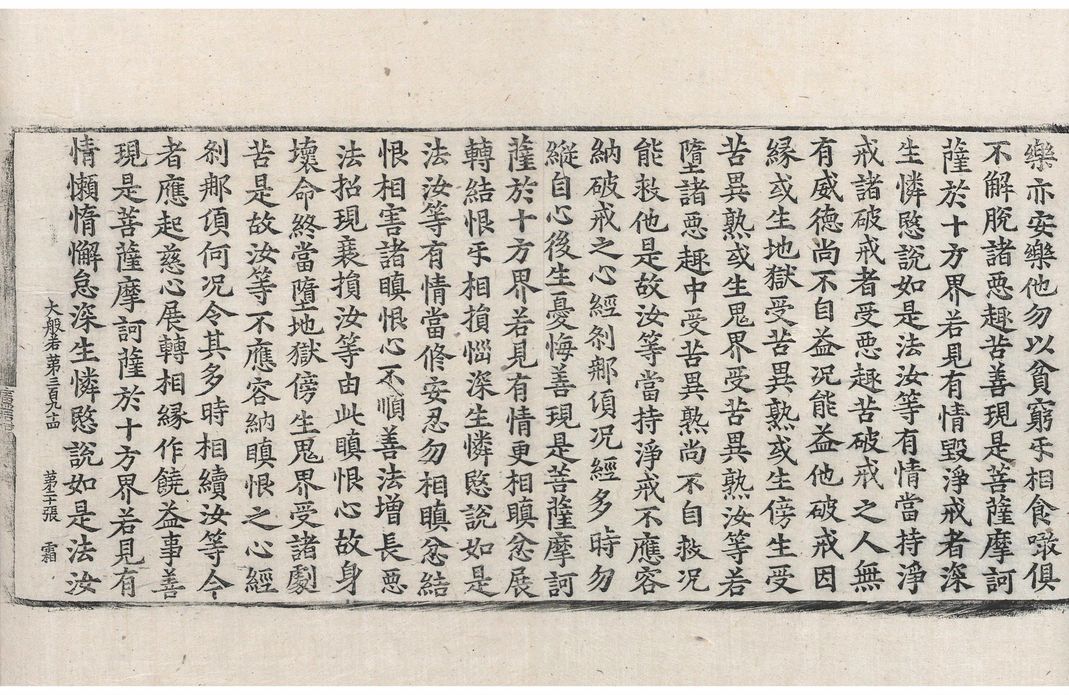 樂亦安樂他勿以貧窮㸦相食噉俱
不解脫諸悪趣苦善現是菩薩摩訶
薩於十方界若見有情毀淨戒者深
生憐愍說如是法汝等有情當持淨
戒諸破戒者受悪趣苦破戒之人無
有威德尚不自益况能益他破戒因
緣或生地獄受苦異熟或生傍生受
苦異熟或生鬼界受苦異熟汝等若
墮諸悪趣中受苦異熟尚不自救况
能救他是故汝等當持淨戒不應容
納破戒之心經刹那頃况經多時勿
縱自心後生憂悔善現是菩薩摩訶
薩於十方界若見有情更相瞋忿展
轉結恨㸦相損惱深生憐愍說如是
法汝等有情當修安忍勿相瞋忿結
恨相害諸瞋恨心不順善法增長悪
法招現衰損汝等由此瞋恨心故身
壞命終當墮地獄傍生鬼界受諸劇
苦是故汝等不應容納瞋恨之心經
刹那頃何况令其多時相續汝等今
者應起慈心展轉相緣作饒益事善
現是菩薩摩訶薩於十方界若見有
情懶惰懈怠深生憐愍說如是法汝
大般若第三百九十四 第二十張 霜